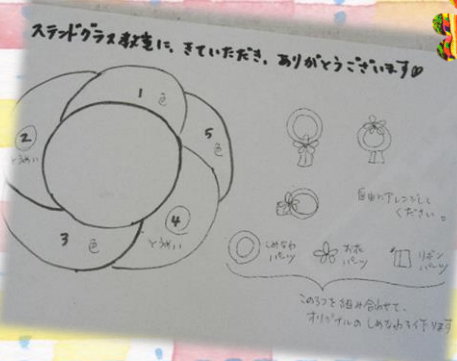 ステンドグラス教室に、きていただき、ありがとうございます♡
1
色
2
とうめい
5
色
4
とうめい
3
色
自由にアレンジして
ください。
しめなわ
パーツ
お花
パーツ
リボン
パーツ
この3つを組み合わせて、
オリジナルのしめなわを作ります